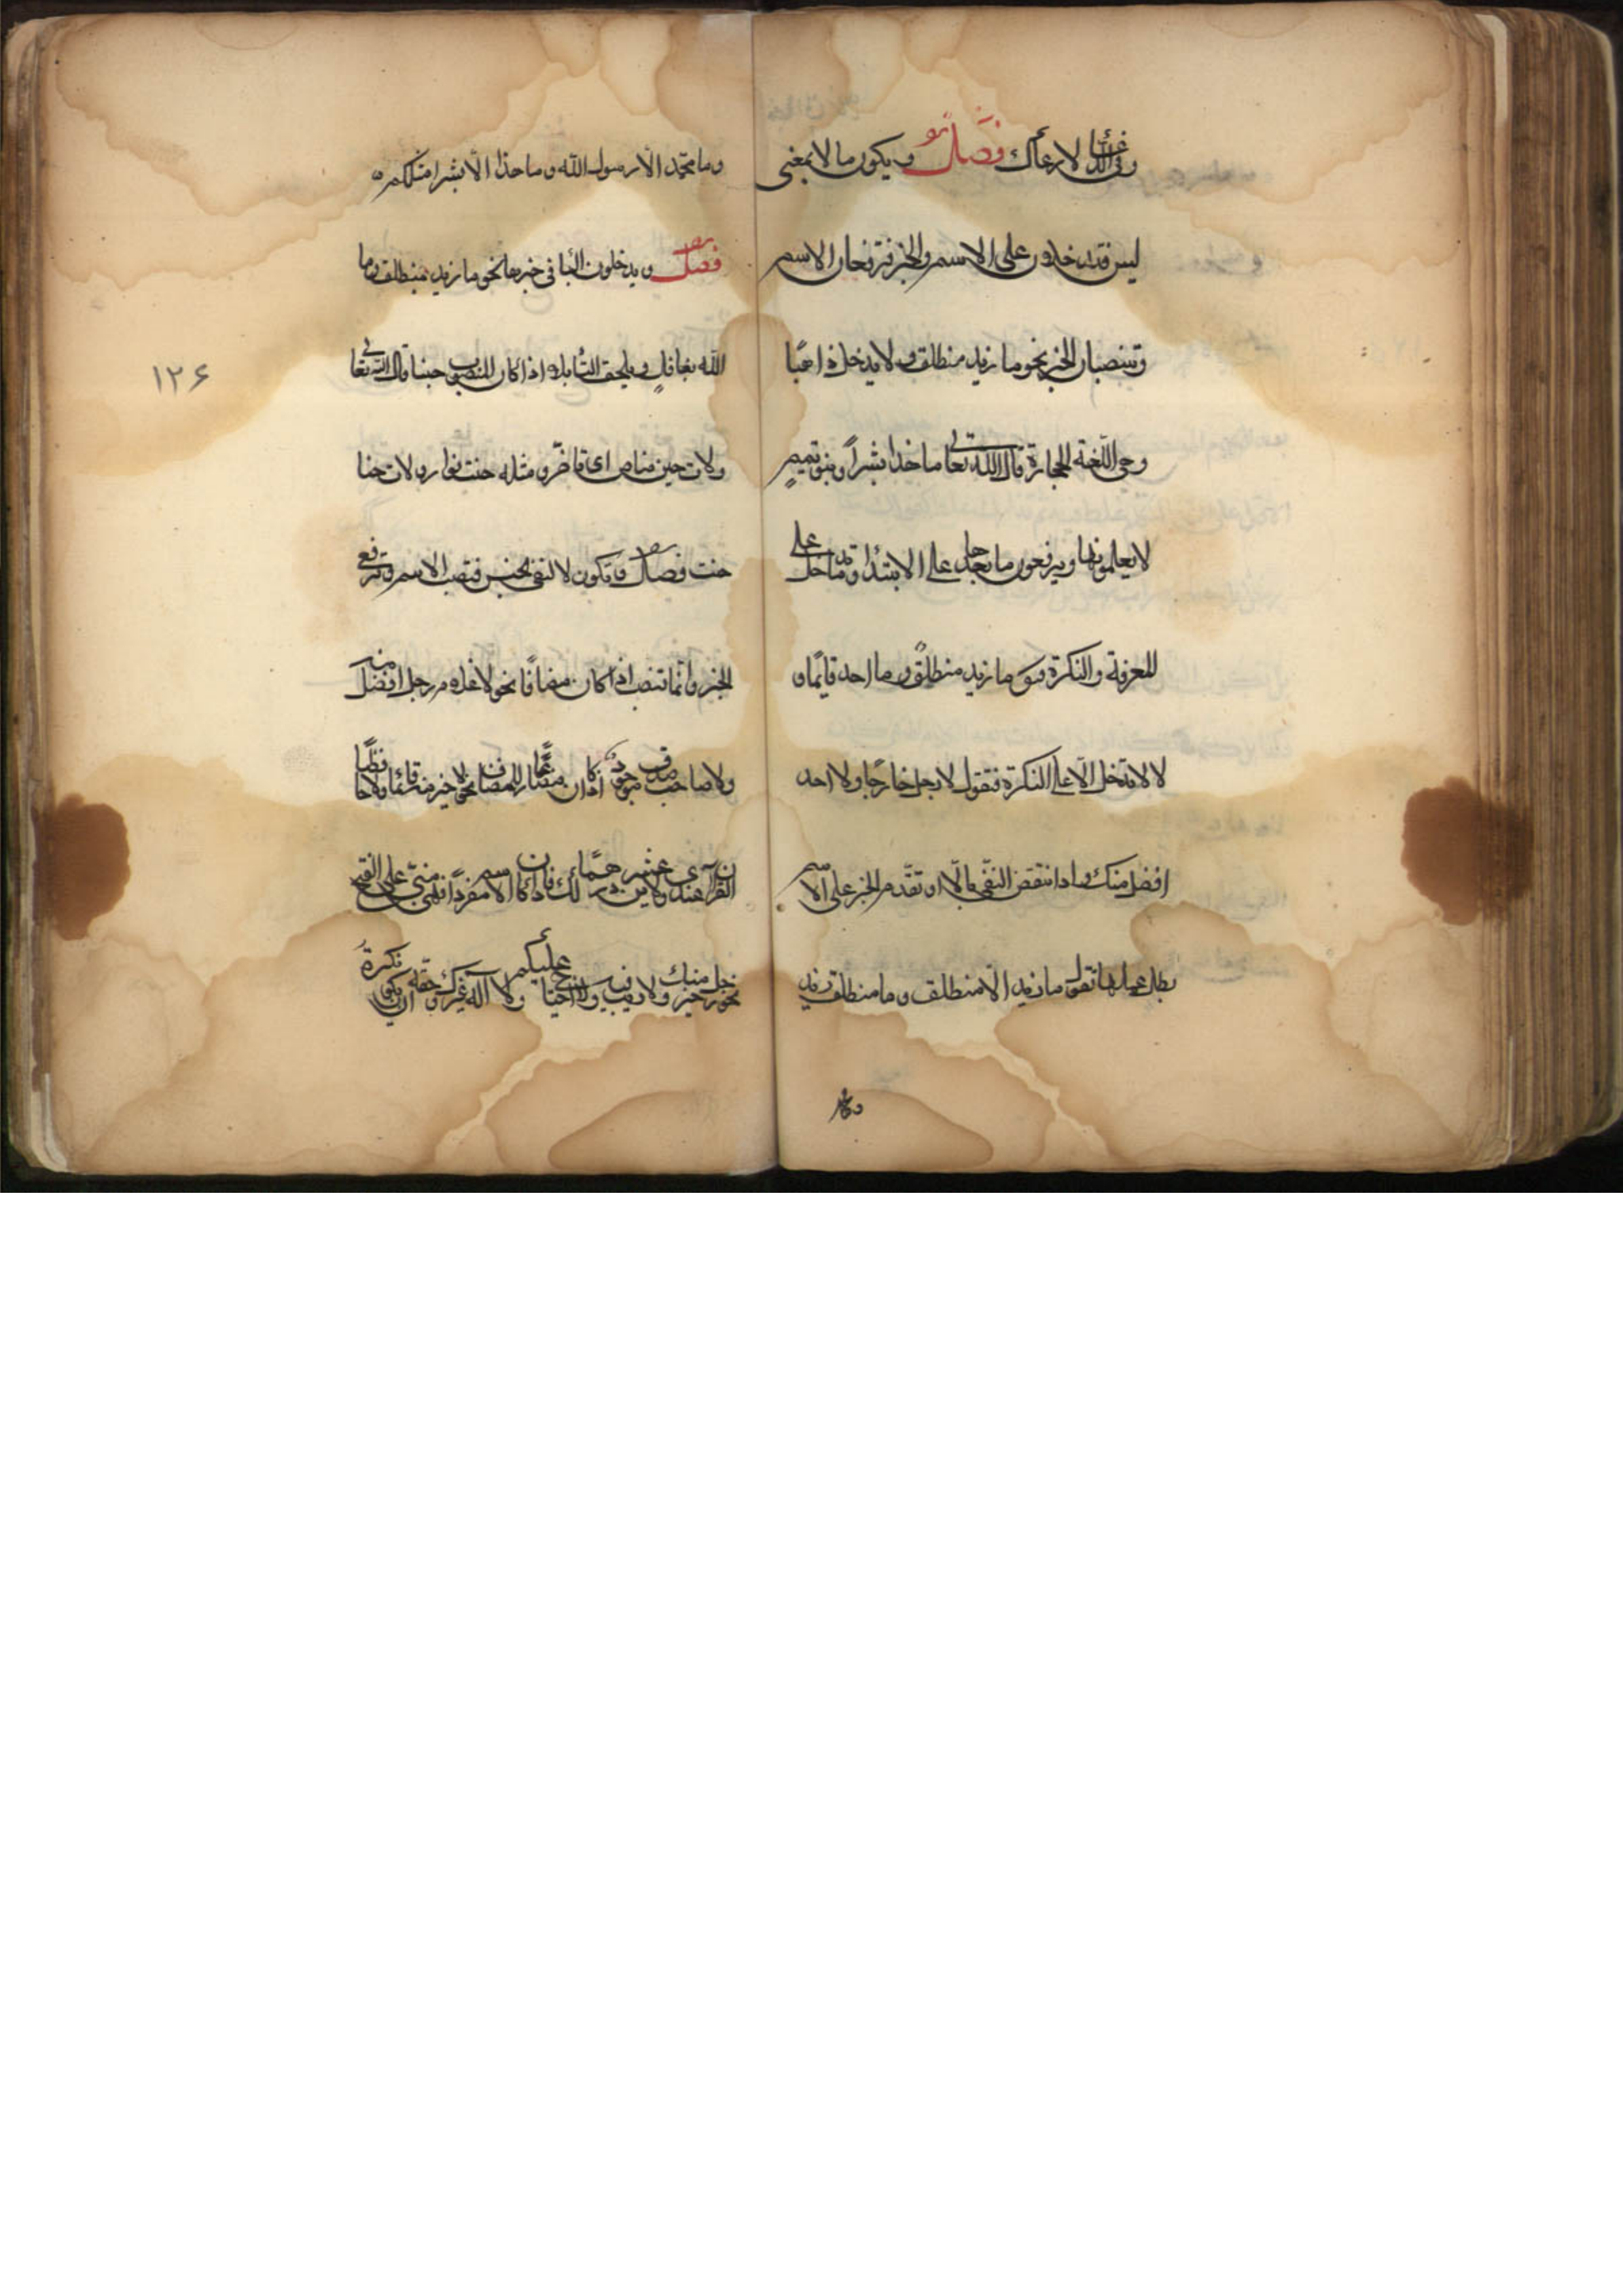 وفي الدعاء لا رعاك فصل ويكون ما لا بمعنى
ليس فتدخلان على الاسم والخبر فترفعان الاسم
وتنصبان الخبر نحو ما زيد منطلقا ولا يدخل
وهي اللغة الحجازة قال الله تعالى ما هذا بشرا وبنو تميم
لا يعلمونها ويرفعون ما بعدها على الابتدا وقد ما دخل على
المعرفة والنكرة فتقو ما زيد منطلقا وما احد قايما و
لا لا تدخل الا على النكرة فتقول لا رجل خارجا ولا احد
افضل منك واذا انتقض النفي بالا او تقدم الخبر على الاسم
بطل عملها تقول ما زيد الا منطلق وما منطلق زيد
وما محمد الا رسول الله وما هذا الا بشرا مثلكم
فصل ويدخلون البا في خبرها نحو ما زيد بمنطلق وما
الله بغافل ويلحق التا بلا اذا كان المنصوب حينا قال الله تعالى
ولات حين مناص اي ومثله حنت نوار ولات هنا
حنت فصل وتكون لا لنفي الجنس فتنصب الاسم وترفع
الخبر وانما تنصب اذا كان مضافا نحو لا غلام رجل افضل منه
ولا صاحب صدق موجود اذا كان مضارعا للمضاف نحو لا خير منه قائما ولا حافظا
القرآن عندي ولا عشرين درهما لك فان كان الاسم مفردا فهي مبني على الفتح
نحو رجل خير منك ولا ريب فيه ولا جناح عليكم ولا آله غيرك وحقه ان يكون نكرة
١٢۶